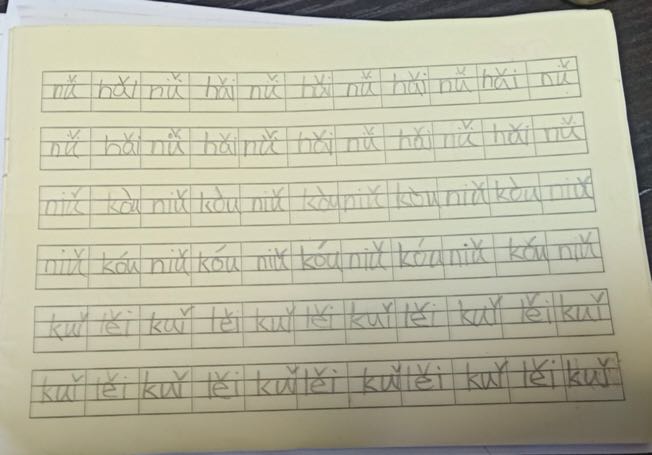 nǚ hǎi nǚ hǎi nǚ hǎi nǚ hǎi nǚ hǎi nǚ
nǚ hǎi nǚ hǎi nǚ hǎi nǚ hǎi nǚ hǎi nǚ
niǔ kòu niǔ kòu niǔ kòu niǔ kòu niǔ kòu niǔ
niǔ kóu niǔ kóu niǔ kóu niǔ kóu niǔ kóu niǔ
kuǐ lěi kuǐ lěi kuǐ lěi kuǐ lěi kuǐ lěi kuǐ
kuǐ lěi kuǐ lěi kuǐ lěi kuǐ lěi kuǐ lěi kuǐ